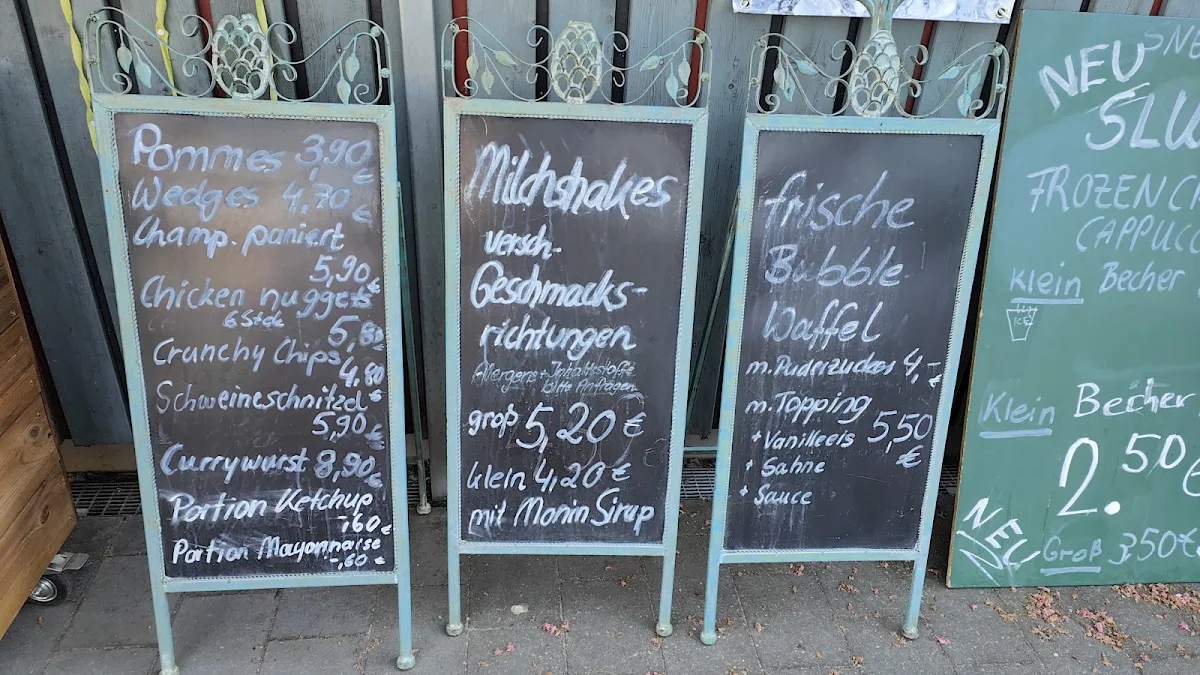 Pommes 3,90 €
Wedges 4,70 €
Champ. paniert
5,90 €
Chicken nuggets
6 Stck 5,80 €
Crunchy Chips
4,80 €
Schweineschnitzel
5,90 €
Currywurst 8,90 €
Portion Ketchup
-,60 €
Portion Mayonnaise
-,60 €
Milchshakes
versch.
Geschmacks-
richtungen
Allergene + Inhaltsstoffe
bitte Anfragen
groß 5,20 €
klein 4,20 €
mit Monin Sirup
frische
Bubble
Waffel
m. Puderzucker 4,- €
m. Topping
+ Vanilleeis 5,50 €
+ Sahne
+ Sauce
NEU
SLU
FROZEN
CAPPUCC
Klein Becher
ICE
Klein Becher
2.50 €
NEU
Groß 3,50 €